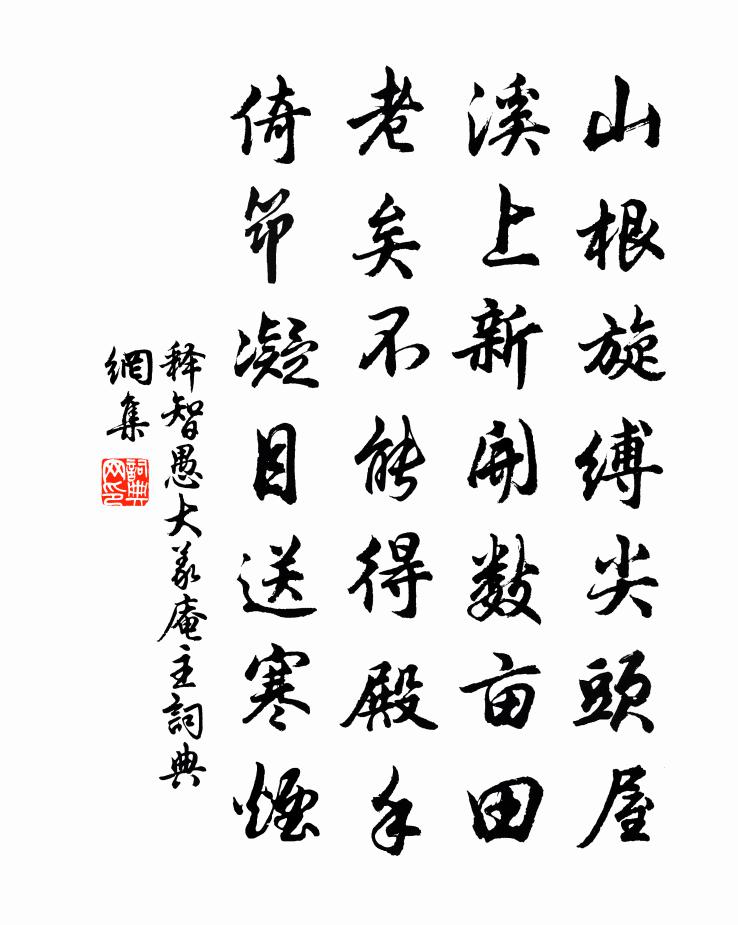 山根旋缚尖頭屋
溪上新開数亩田
老矣不能得殿手
倚筇凝目送寒煙
释智愚大義庵主詞典
網集
詞典
网印